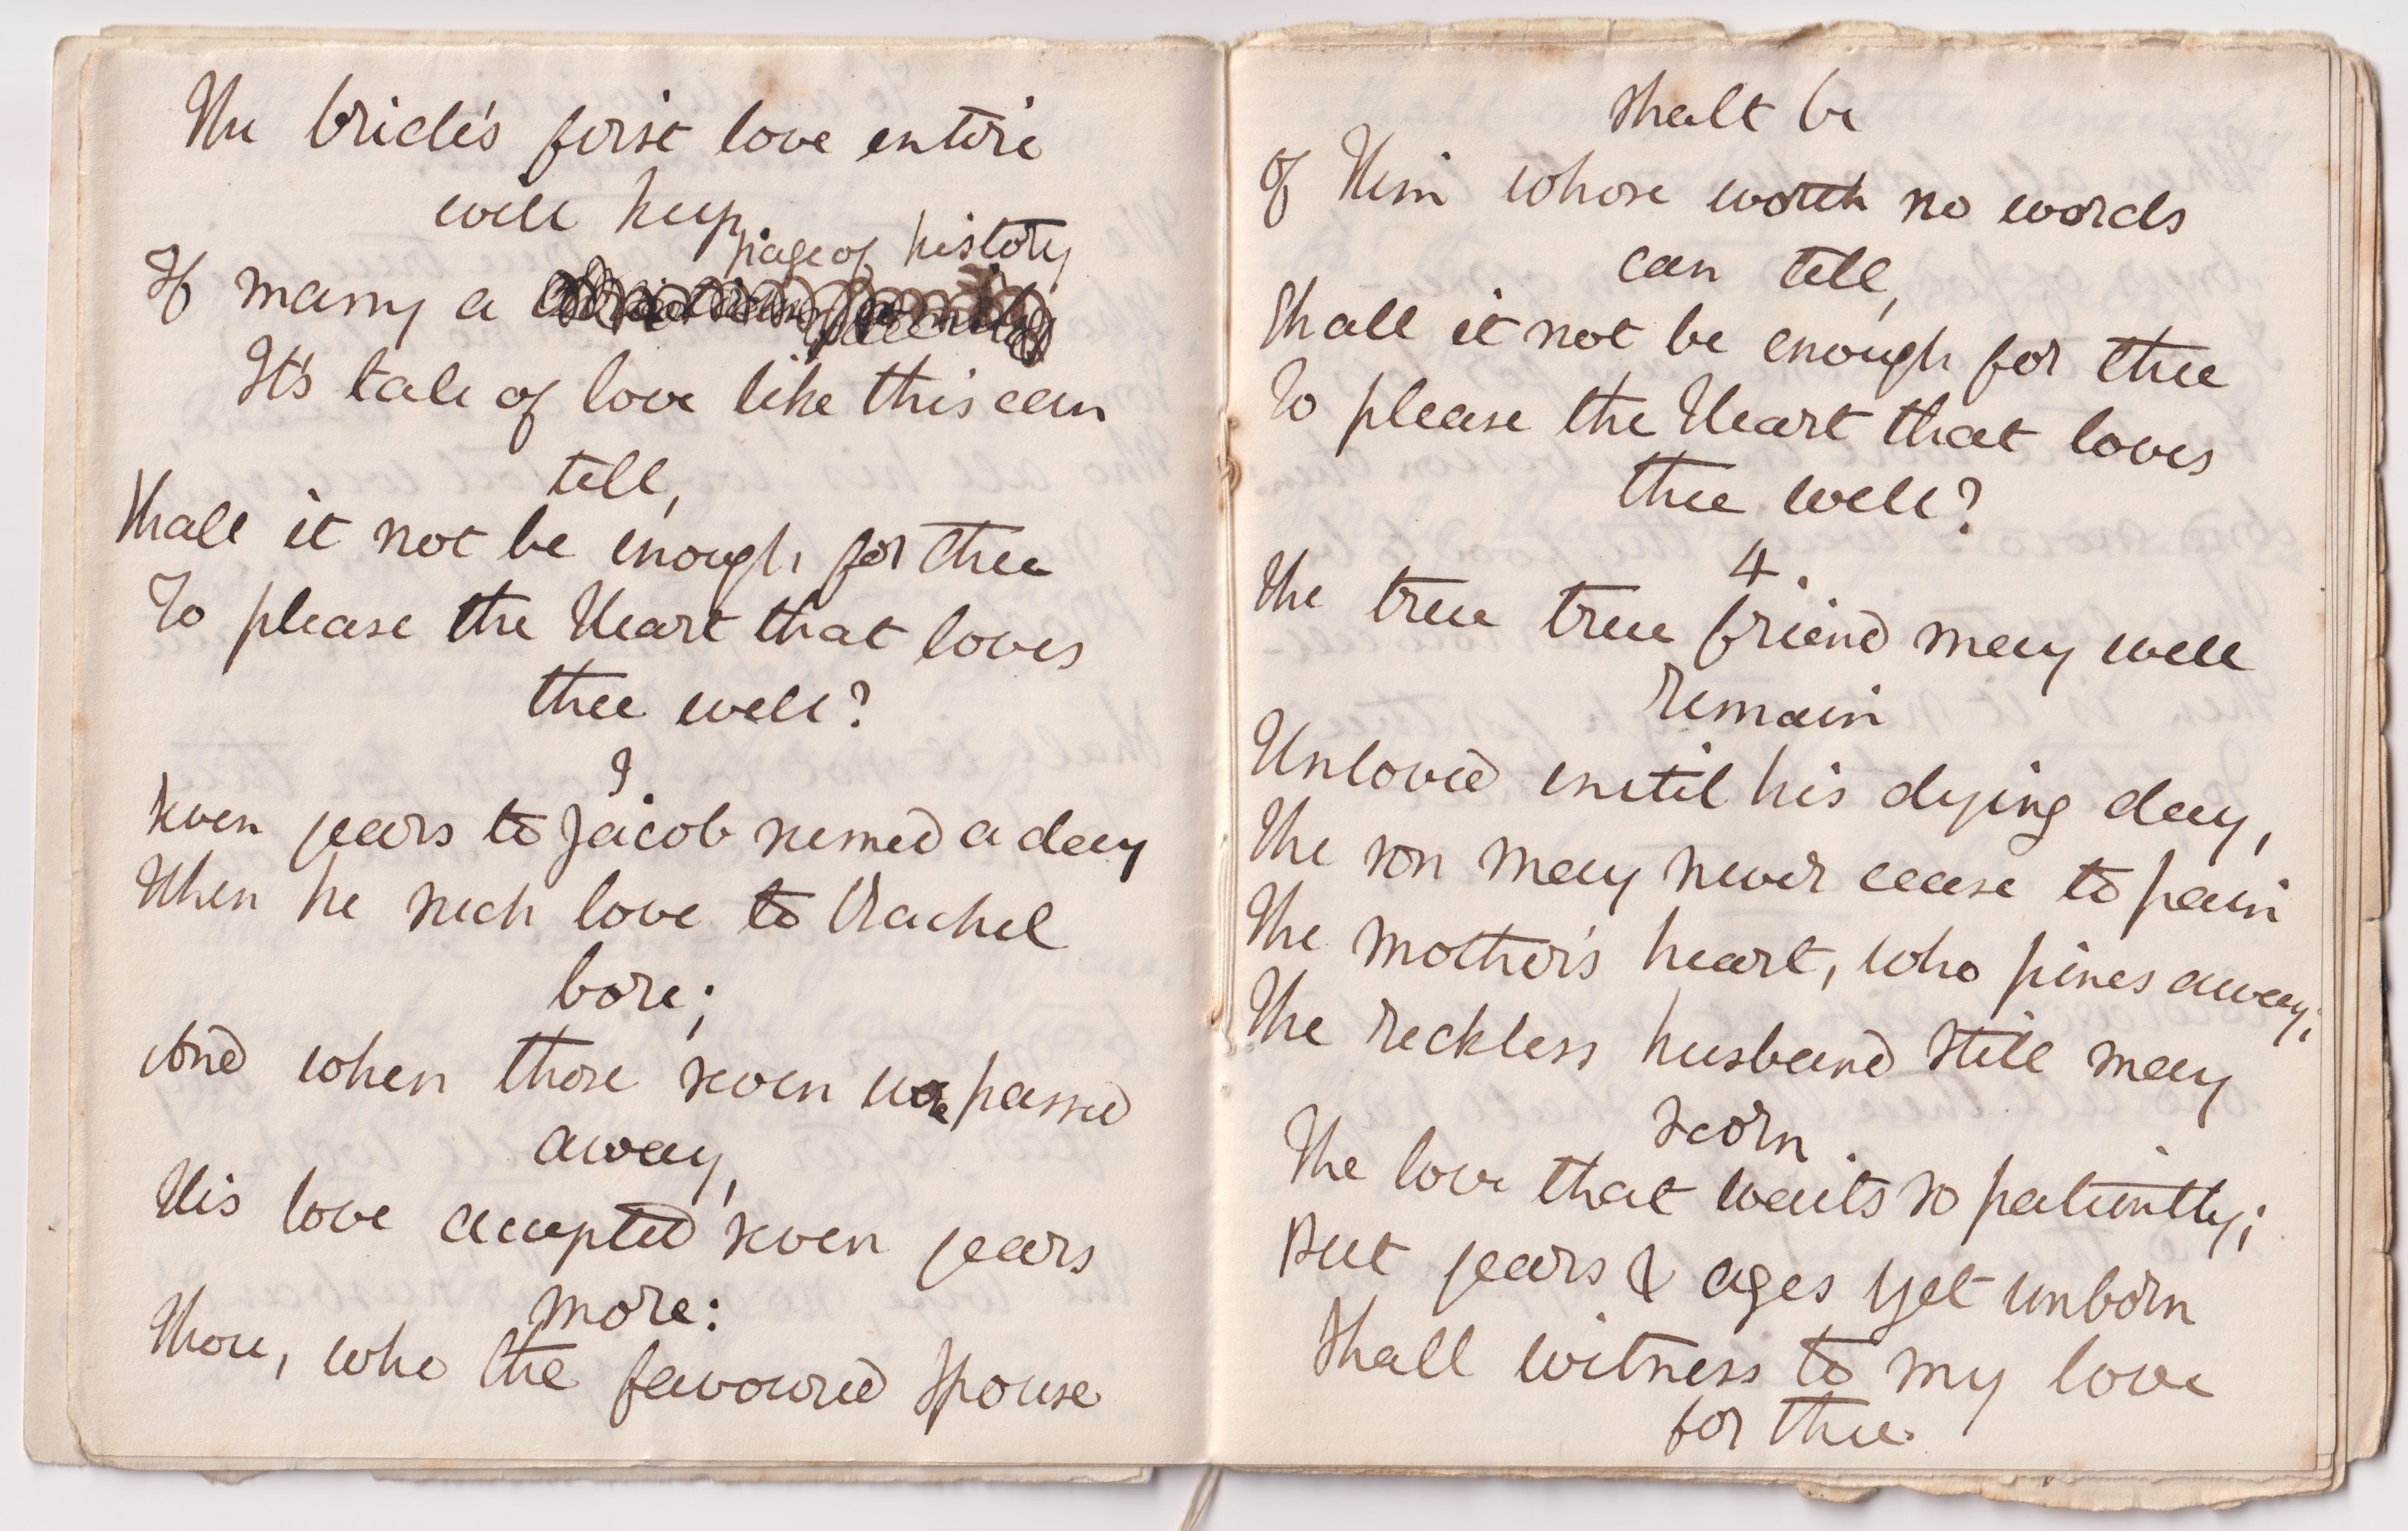 The bride's first love entire
will keep,
page of history
If many a
It's tale of love like this can
tell,
Shall it not be enough for thee
To please the Heart that loves
thee well?
3
Seven years to Jacob seemed a day
When he such love to Rachel
bore;
And when those seven were passed
away,
His love accepted seven years
more:
Thou, who the favoured Spouse
shalt be
Of Him whose worth no words
can tell,
Shall it not be enough for thee
To please the Heart that loves
thee well?
4.
The true true friend may well
remain
Unloved until his dying day,
The son may never cease to pain
The mother's heart, who pines away;
The reckless husband still may
scorn
The love that waits so patiently;
But years & ages yet unborn
Shall witness to my love
for thee.